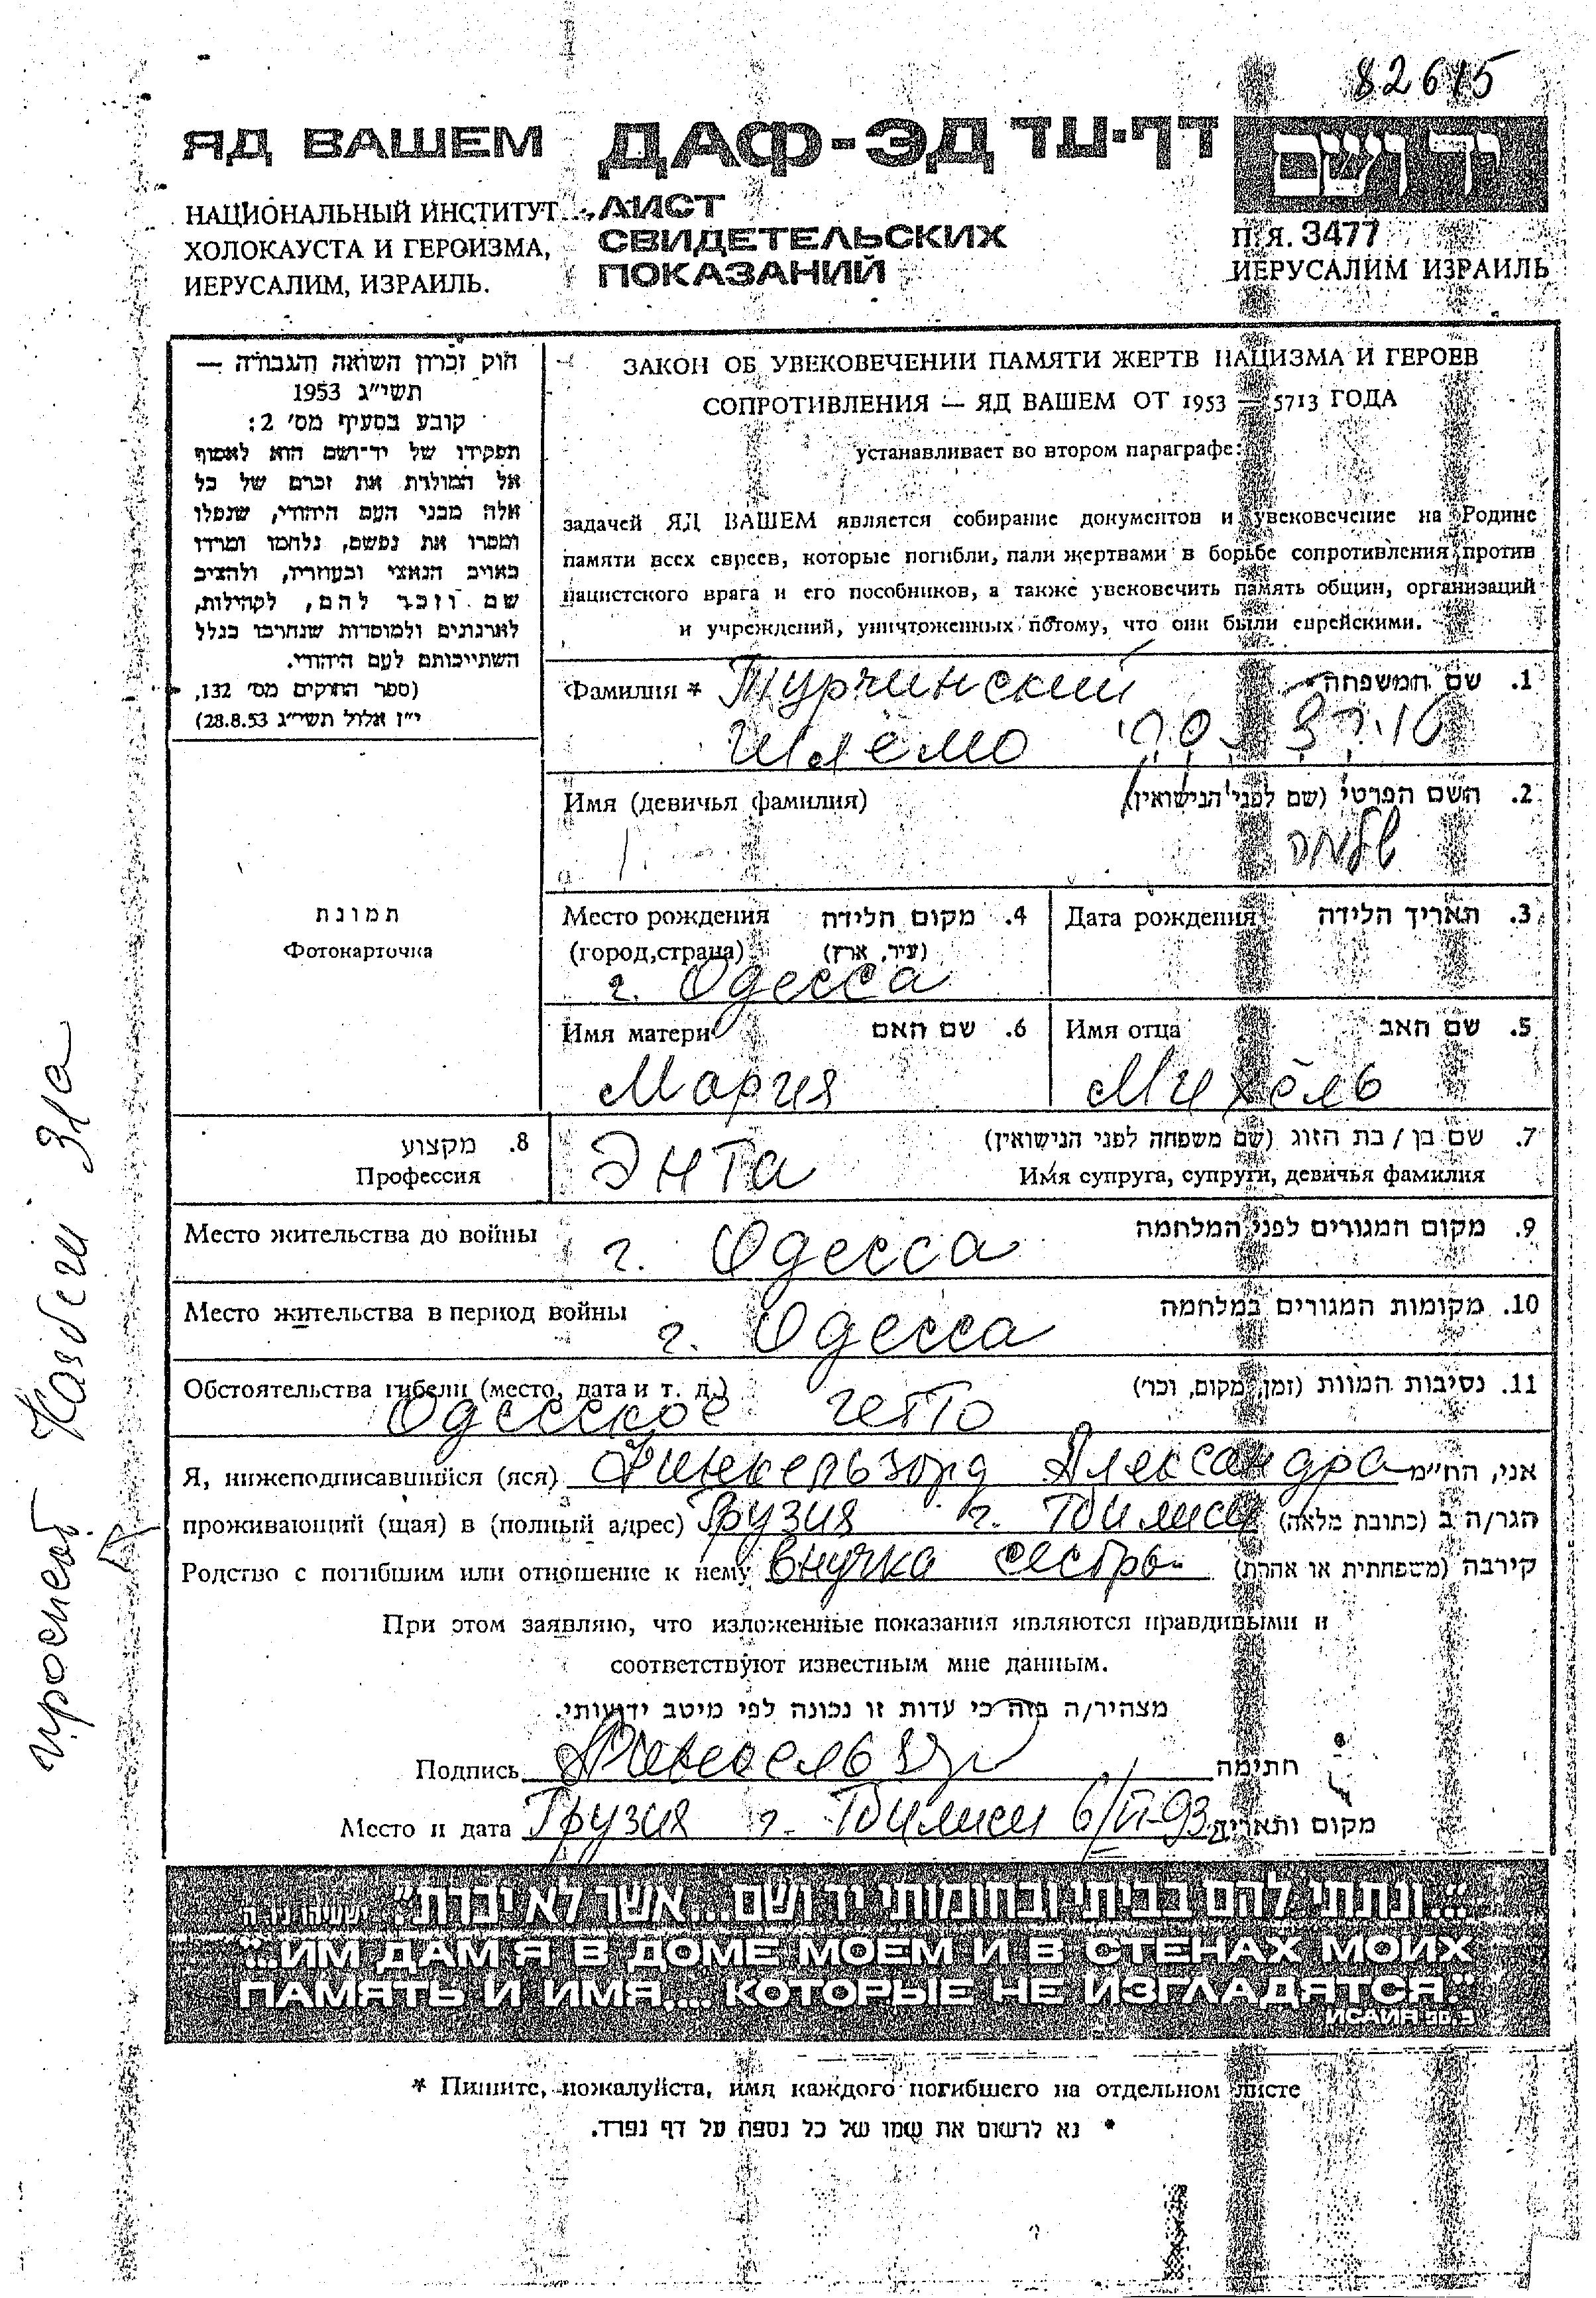 82615
ЯД ВАШЕМ ДАФ-ЭД דף-עד יד ושם
НАЦИОНАЛЬНЫЙ ИНСТИТУТ
ХОЛОКАУСТА И ГЕРОИЗМА,
ИЕРУСАЛИМ, ИЗРАИЛЬ.
ЛИСТ
СВИДЕТЕЛЬСКИХ
ПОКАЗАНИЙ
П.Я. 3477
ИЕРУСАЛИМ ИЗРАИЛЬ
חוק זכרון השואה והגבורה —
תשי״ג 1953
קובע בסעיף מס׳ 2:
תפקידו של יד-ושם הוא לאסוף
אל המולדת את זכרם של כל
אלה מבני העם היהודי, שנפלו
ומסרו את נפשם, נלחמו ומרדו
באויב הנאצי ובעוזריו, ולהציב
שם וזכר להם, לקהילות,
לארגונים ולמוסדות שנחרבו בגלל
השתייכותם לעם היהודי.
(ספר החוקים מס׳ 132,
י״ז אלול תשי״ג 28.8.53)
ЗАКОН ОБ УВЕКОВЕЧЕНИИ ПАМЯТИ ЖЕРТВ НАЦИЗМА И ГЕРОЕВ
СОПРОТИВЛЕНИЯ — ЯД ВАШЕМ ОТ 1953 — 5713 ГОДА
устанавливает во втором параграфе:
задачей ЯД ВАШЕМ является собирание документов и увековечение на Родине
памяти всех евреев, которые погибли, пали жертвами в борьбе сопротивления против
нацистского врага и его пособников, а также увековечить память общин, организаций
и учреждений, уничтоженных потому, что они были еврейскими.
Фамилия * Турчинский 1. שם המשפחה
Шлёмо
Имя (девичья фамилия) 2. השם הפרטי (שם לפני הנישואין)
שלמה
תמונת
Фотокарточка
Место рождения 4. מקום הלידה Дата рождения 3. תאריך הלידה
(город,страна) (עיר, ארץ)
г. Одесса
Имя матери 6. שם האם Имя отца 5. שם האב
Мария Михель
8. מקצוע
Профессия
Энта 7. שם בן / בת הזוג (שם משפחה לפני הנישואין)
Имя супруга, супруги, девичья фамилия
Место жительства до войны г. Одесса 9. מקום המגורים לפני המלחמה
Место жительства в период войны г. Одесса 10. מקומות המגורים במלחמה
Обстоятельства гибели (место, дата и т. д.) 11. נסיבות המוות (זמן, מקום, וכו׳)
Одесское гетто
Я, нижеподписавшийся (яся) Финкельзорд Александра אני, הח״מ
проживающий (щая) в (полный адрес) Грузия г. Тбилиси הגר/ה ב (כתובת מלאה)
Родство с погибшим или отношение к нему внучка сестры קירבה (משפחתית או אחרת)
При этом заявляю, что изложенные показания являются правдивыми и
соответствуют известным мне данным.
מצהיר/ה בזה כי עדות זו נכונה לפי מיטב ידיעותי.
Подпись חתימה
Место и дата Грузия г. Тбилиси 6/VI-93 מקום ותאריך
проспект Казбеги 31а
״...ונתתי להם בביתי ובחומותי יד ושם... אשר לא יכרת״ ישעיהו נו, ה
"...ИМ ДАМ Я В ДОМЕ МОЕМ И В СТЕНАХ МОИХ
ПАМЯТЬ И ИМЯ,... КОТОРЫЕ НЕ ИЗГЛАДЯТСЯ."
* Пишите, пожалуйста, имя каждого погибшего на отдельном листе
* נא לרשום את שמו של כל נספה על דף נפרד.